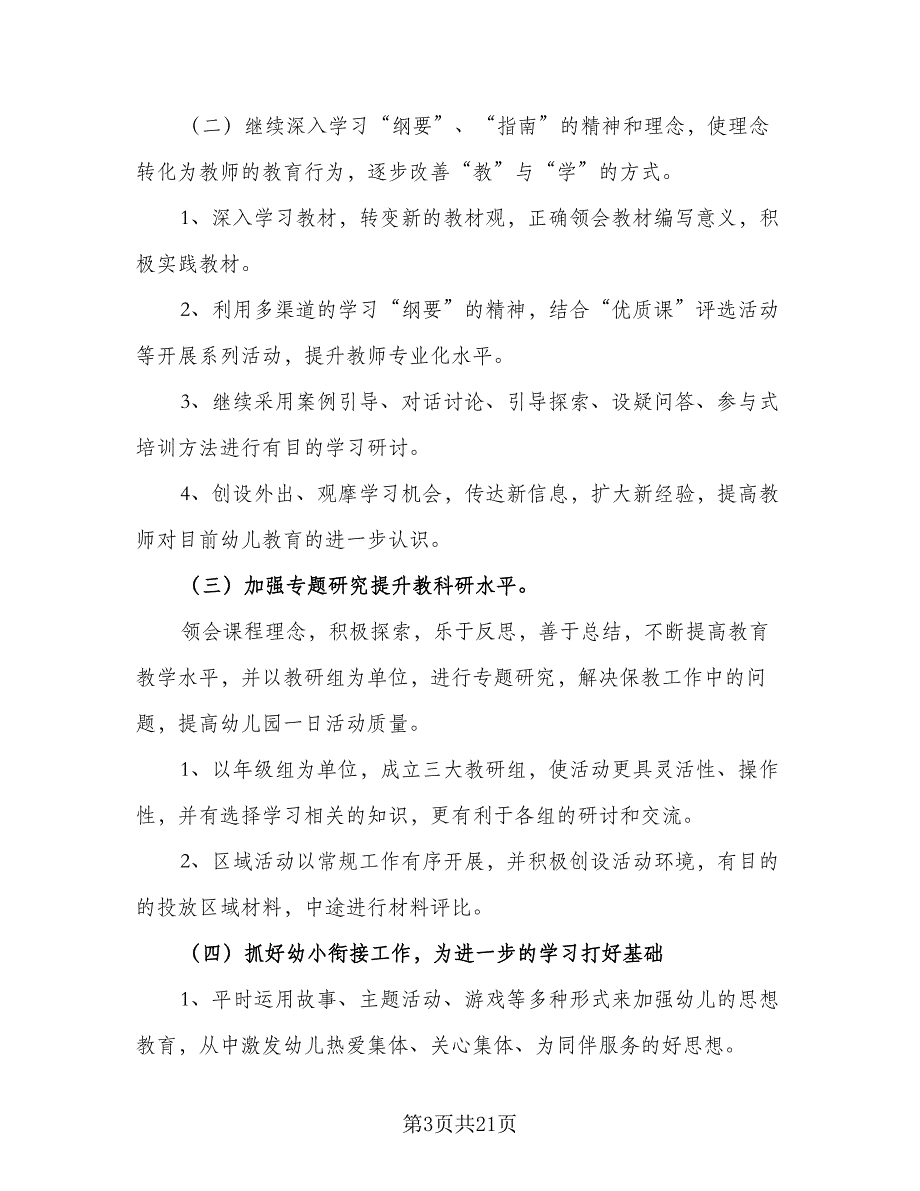 （二）继续深入学习“纲要”、“指南”的精神和理念，使理念
转化为教师的教育行为，逐步改善“教”与“学”的方式。
1、深入学习教材，转变新的教材观，正确领会教材编写意义，积
极实践教材。
2、利用多渠道的学习“纲要”的精神，结合“优质课”评选活动
等开展系列活动，提升教师专业化水平。
3、继续采用案例引导、对话讨论、引导探索、设疑问答、参与式
培训方法进行有目的学习研讨。
4、创设外出、观摩学习机会，传达新信息，扩大新经验，提高教
师对目前幼儿教育的进一步认识。
（三）加强专题研究提升教科研水平。
领会课程理念，积极探索，乐于反思，善于总结，不断提高教育
教学水平，并以教研组为单位，进行专题研究，解决保教工作中的问
题，提高幼儿园一日活动质量。
1、以年级组为单位，成立三大教研组，使活动更具灵活性、操作
性，并有选择学习相关的知识，更有利于各组的研讨和交流。
2、区域活动以常规工作有序开展，并积极创设活动环境，有目的
的投放区域材料，中途进行材料评比。
（四）抓好幼小衔接工作，为进一步的学习打好基础
1、平时运用故事、主题活动、游戏等多种形式来加强幼儿的思想
教育，从中激发幼儿热爱集体、关心集体、为同伴服务的好思想。
第3页共21页